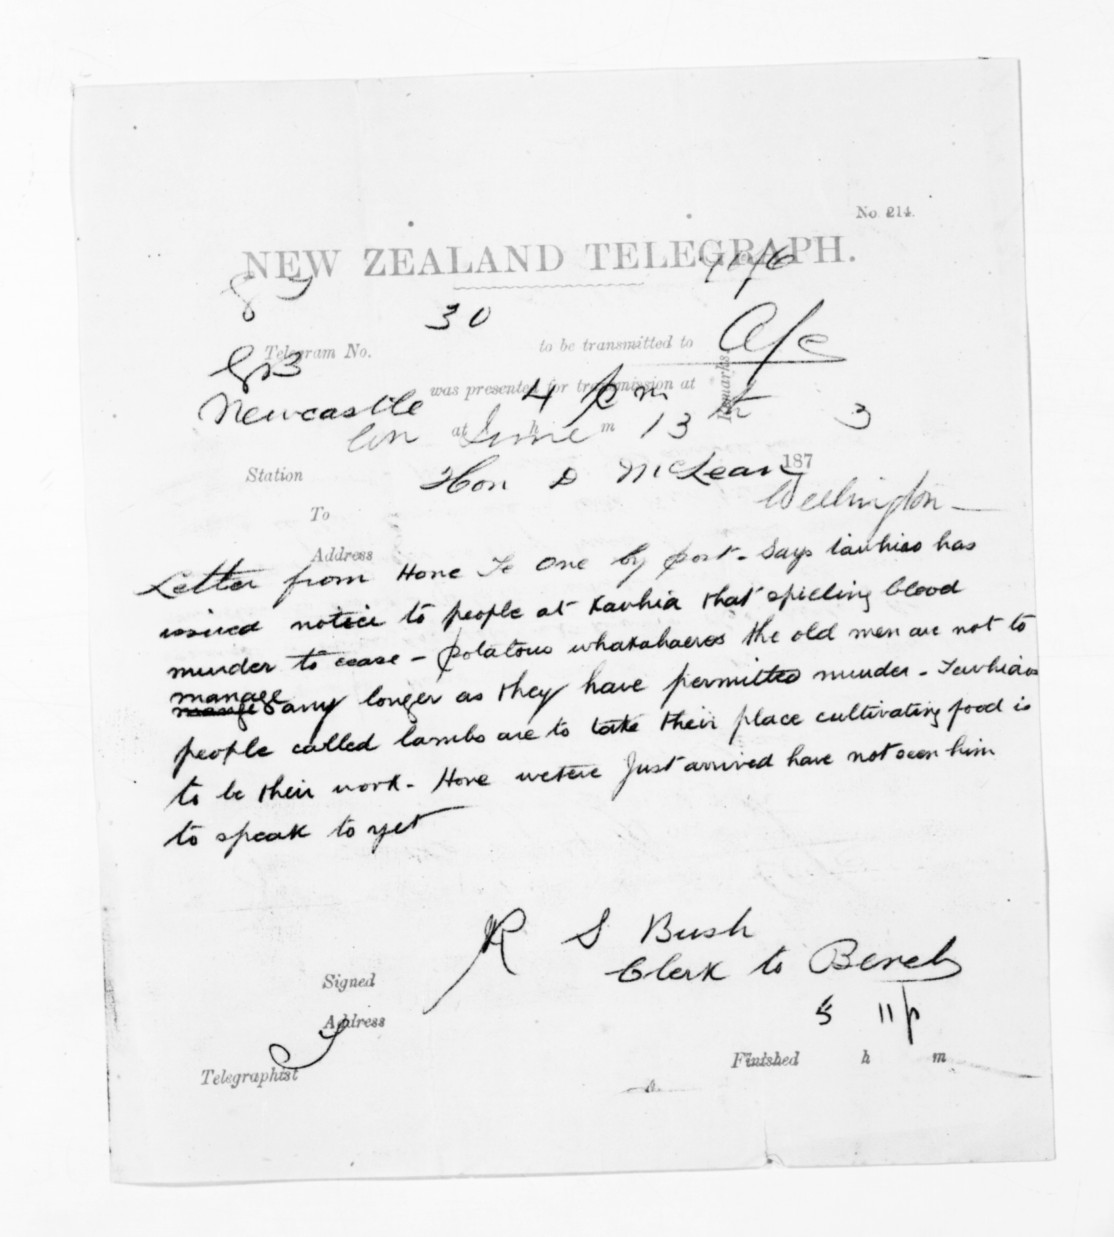 No. 214.
NEW ZEALAND TELEGRAPH.
30
Telegram No. to be transmitted to
Remarks
Newcastle was presented for transmission at 4 pm
on at June h m 13 th 3
Station Hon D McLean 187
To Wellington
Address
Letter from Hone Te One by post - Says tawhiao has
issued notice to people at Kawhia that spilling blood
murder to cease - Potatous whakahaeres the old men are not to
manage
any longer as they have permitted murder - Tawhiaos
people called lambs are to take their place cultivating food is
to be their work - Hone wetere Just arrived have not seen him
to speak to yet
R S Bush
Clerk to Bench
Signed
Address
5 11 p
Finished h m
Telegraphist